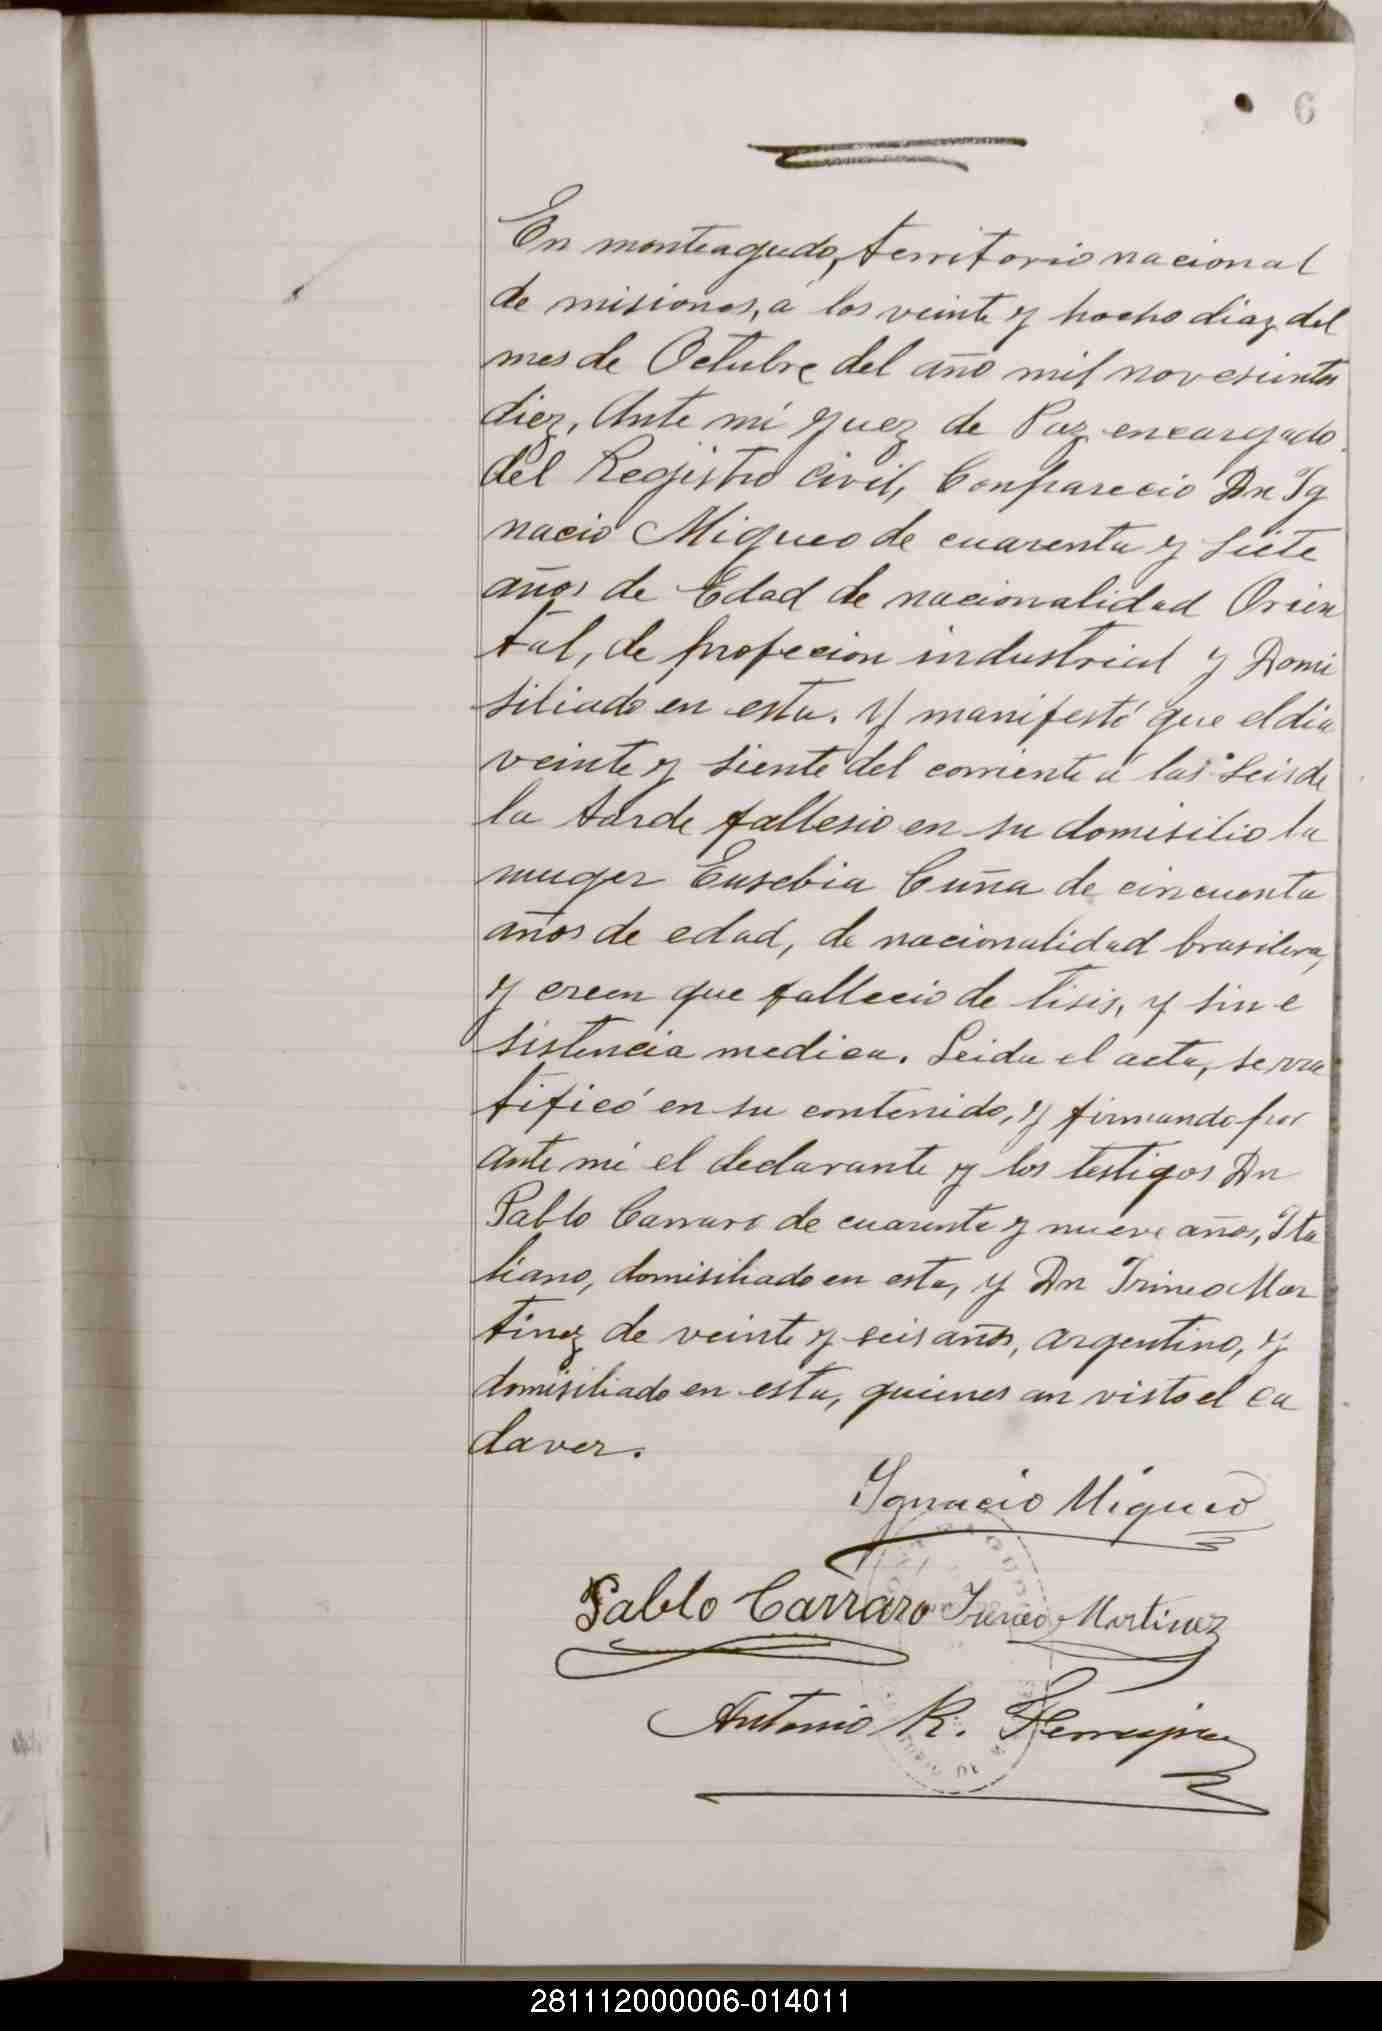 6
En monteagudo, territorio nacional
de misiones, á los veinte y hocho diaz del
mes de Octubre del año mil novesientos
diez, Ante mi Juez de Paz encargado
del Registro Civil, Comparecio Dn Ig
nacio Migueo de cuarenta y siete
años de Edad de nacionalidad Orien
tal, de profecion industrial y Domi
siliado en esta. Y manifestó que el dia
veinte y siente del corriente á las seis de
la tarde fallesio en su domisilio la
muger Eusebia Cuña de cincuenta
años de edad, de nacionalidad brasilera,
y creen que fallecio de tisis, y sin e
sistencia medica. Leida el acta, se rra
tificó en su contenido, y firmando por
ante mi el declarante y los testigos Dn
Pablo Carraro de cuarenta y nueve años, Ita
liano, domisiliado en esta, y Dn Irineo Mar
tinez de veinte y seis años, argentino, y
domisiliado en esta, quienes an visto el ca
daver.
Ignacio Migueo
Pablo Carraro Ireneo Martinez
Antonio R.
281112000006-014011